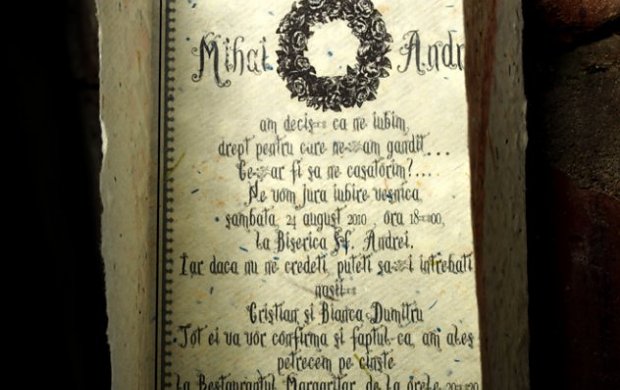 Mihai Andr
am decis ca ne iubim,
drept pentru care ne-am gandit...
Ce-ar fi sa ne casatorim?...
Ne vom jura iubire vesnica
sambata 24 august 2010, ora 18
La Biserica Sf. Andrei.
Iar daca nu ne credeti puteti sa-i intrebati
nasii
Cristian si Bianca Dumitru
Tot ei va vor confirma si faptul ca am ales
petrecem pe cinste
La Restaurantul Margaritar de la orele